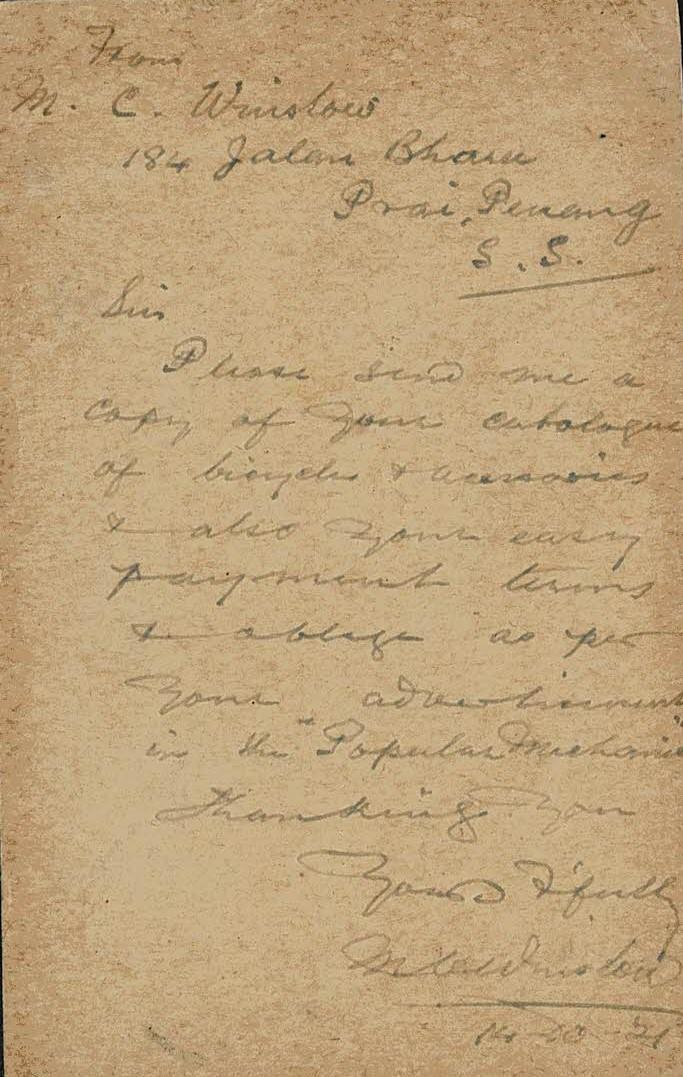 From
M. C. Winslow
184 Jalan Bharu
Prai, Penang
S. S.
Sir
Please send me a
copy of your catalogue
of bicycles & accessories
& also your easy
payment terms
& oblige as per
your advertisement
in the "Popular Mechanic
Thanking you
Yours F'fully
M C Winslow